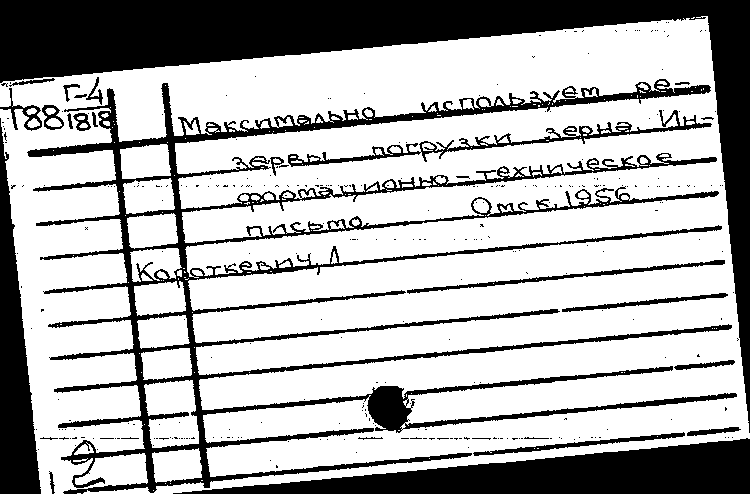 Г-4
Т88 1818
Максимально использует ре-
зервы погрузки зерна. Ин-
формационно-техническое
письмо. Омск, 1956.
Короткевич, Л